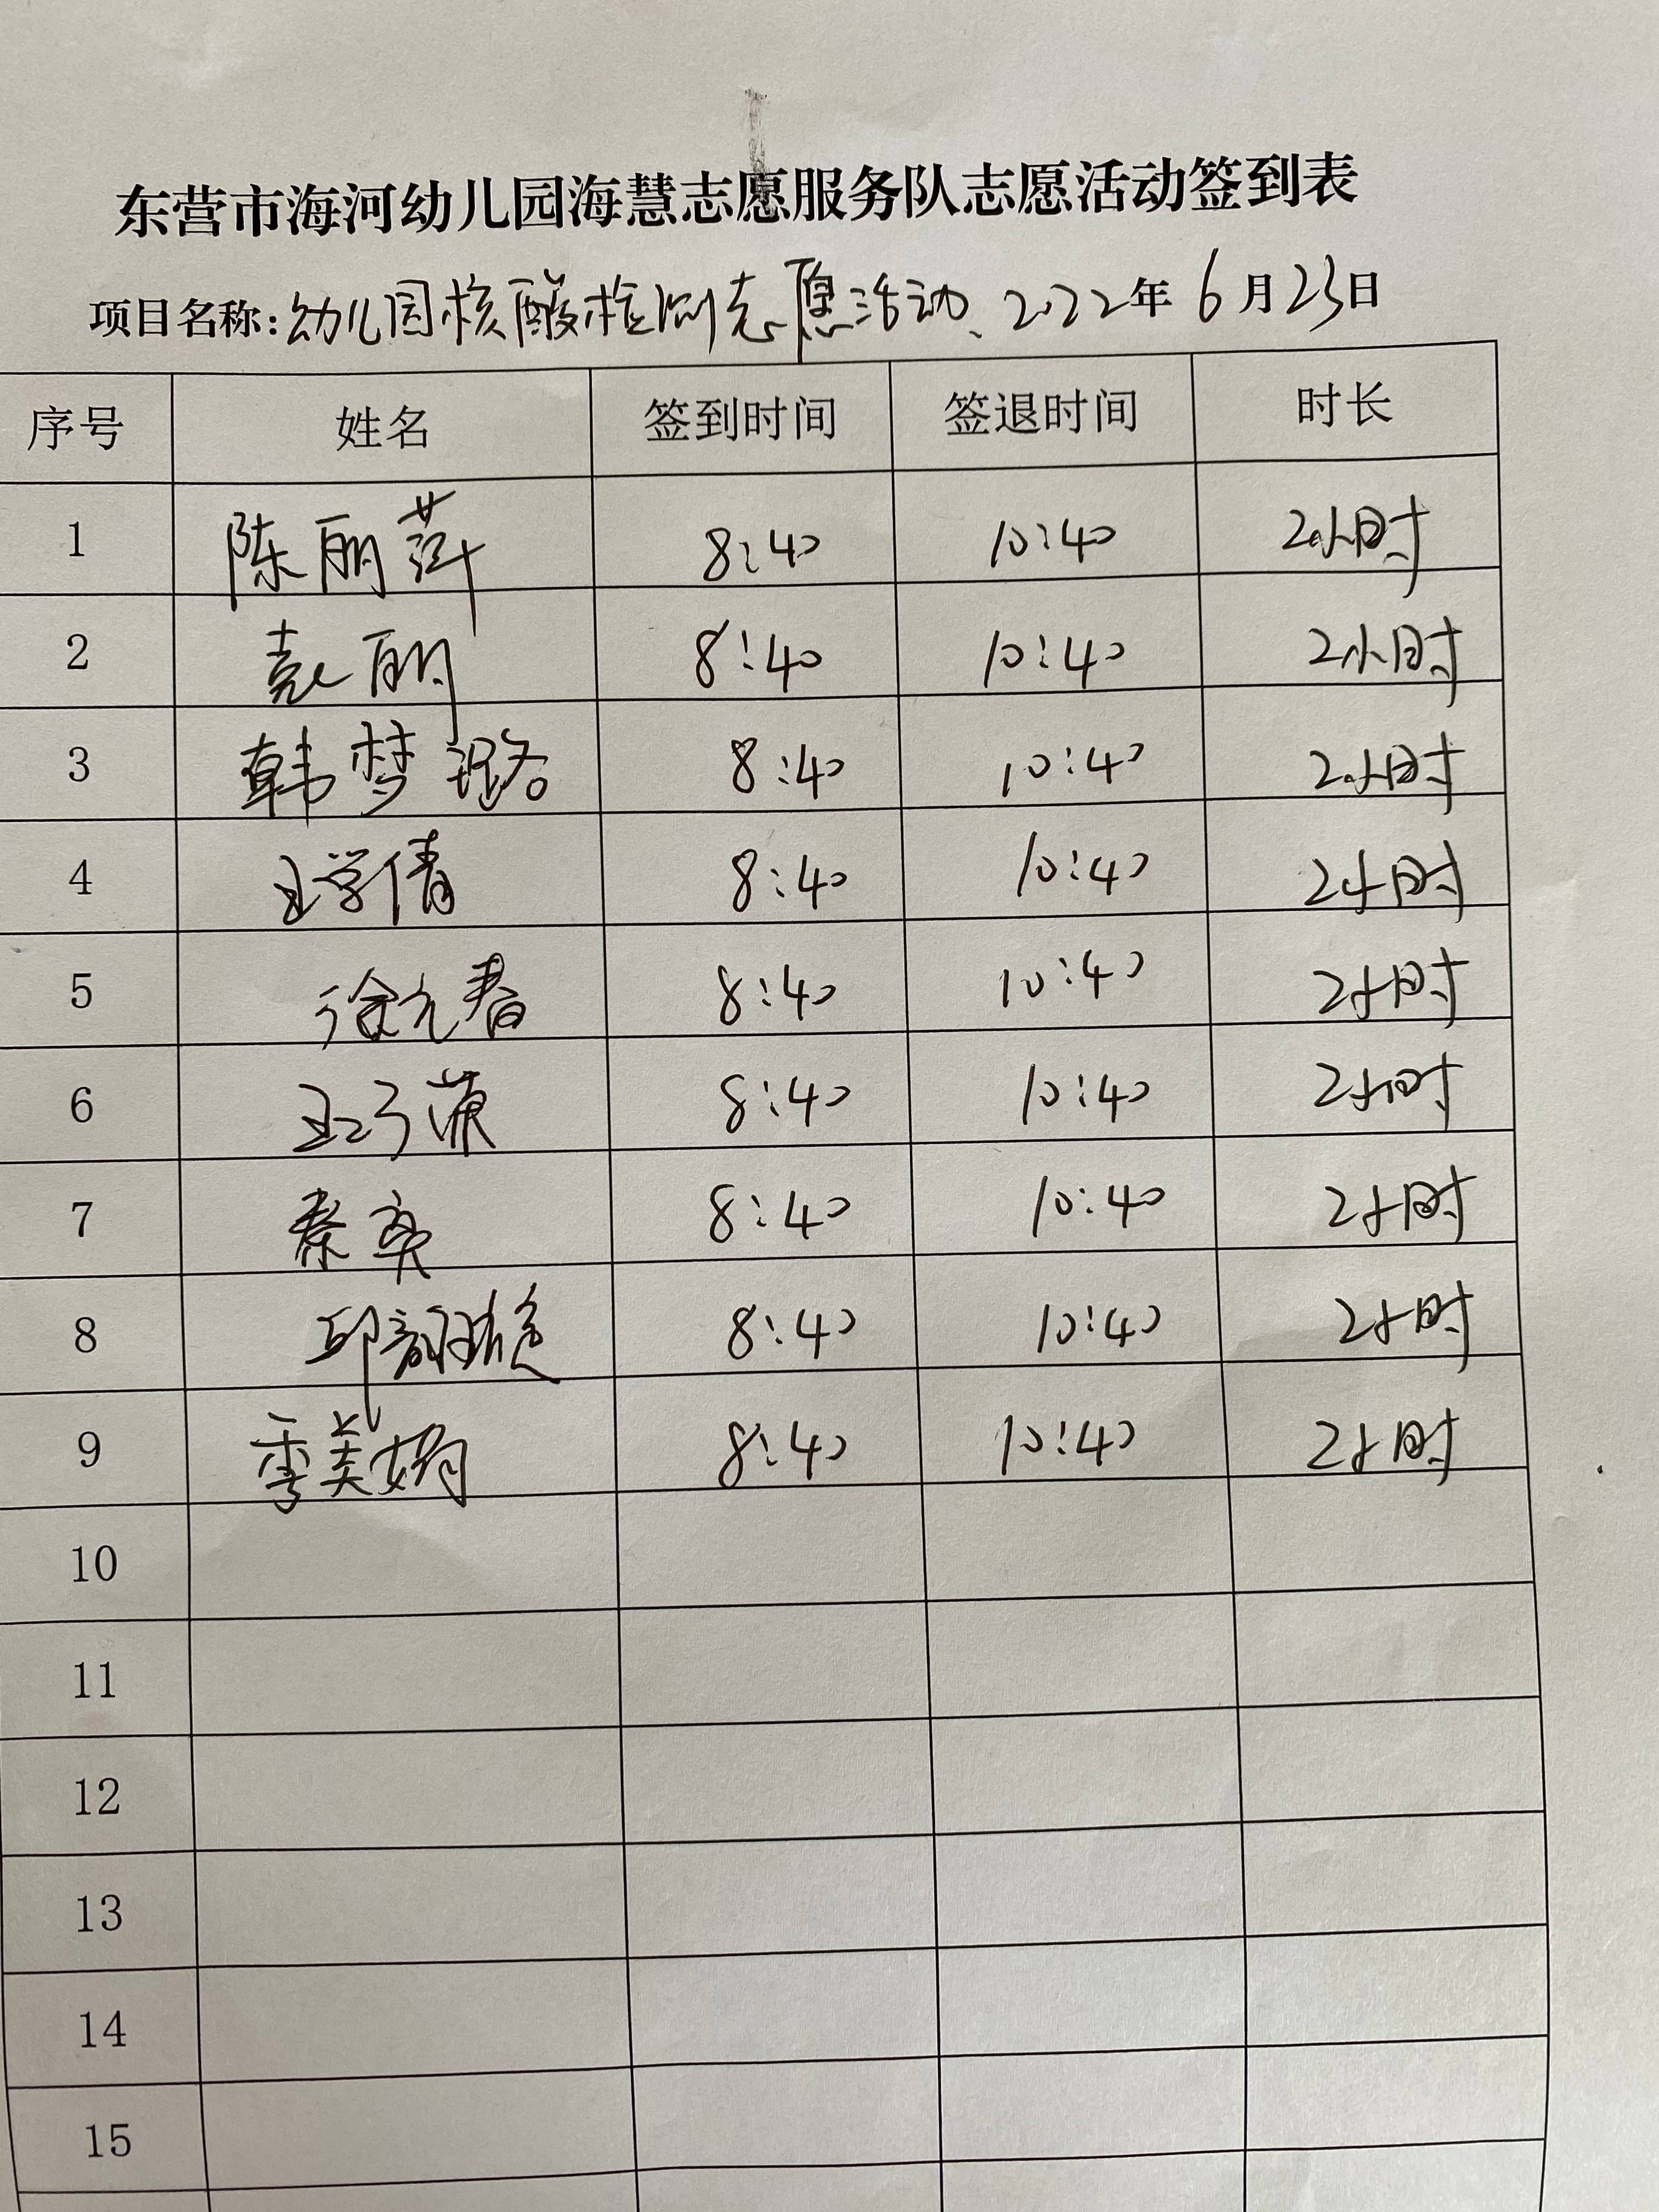 东营市海河幼儿园海慧志愿服务队志愿活动签到表
项目名称:幼儿园核酸检测志愿活动、2022年6月23日
序号 姓名 签到时间 签退时间 时长
1 陈丽萍 8:40 10:40 2小时
2 袁丽 8:40 10:40 2小时
3 韩梦璐 8:40 10:40 2小时
4 王学倩 8:40 10:40 2小时
5 徐元春 8:40 10:40 2小时
6 8:40 10:40 2小时
7 秦奕 8:40 10:40 2小时
8 邱韶璇 8:40 10:40 2小时
9 季美娟 8:40 10:40 2小时
10
11
12
13
14
15